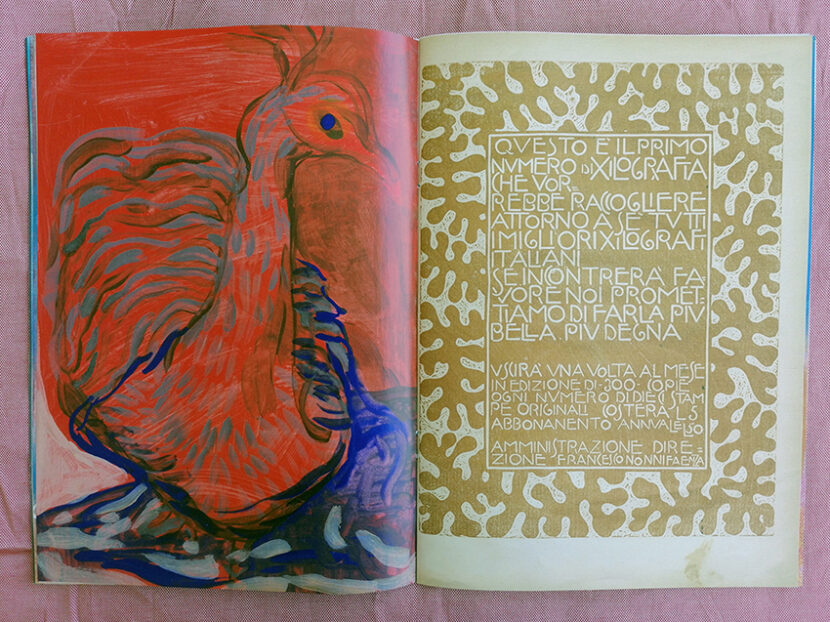 QVESTO E' IL PRIMO
NVMERO DI XILOGRAFIA
CHE VOR=
REBBE RACCOGLIERE
ATTORNO A SE' TVTTI
I MIGLIORI XILOGRAFI
ITALIANI
SE INCONTRERA' FA=
VORE NOI PROMET=
TIAMO DI FARLA PIV
BELLA. PIV DEGNA
VSCIRA' VNA VOLTA AL MESE
IN EDIZIONE DI-300-COPIE
OGNI NVMERO DI DIECI STAM
PE ORIGINALI COSTERA' L.5
ABBONANENTO ANNVALE L.50
AMMINISTRAZIONE DIRE=
ZIONE FRANCESCO NONNI FAENZA